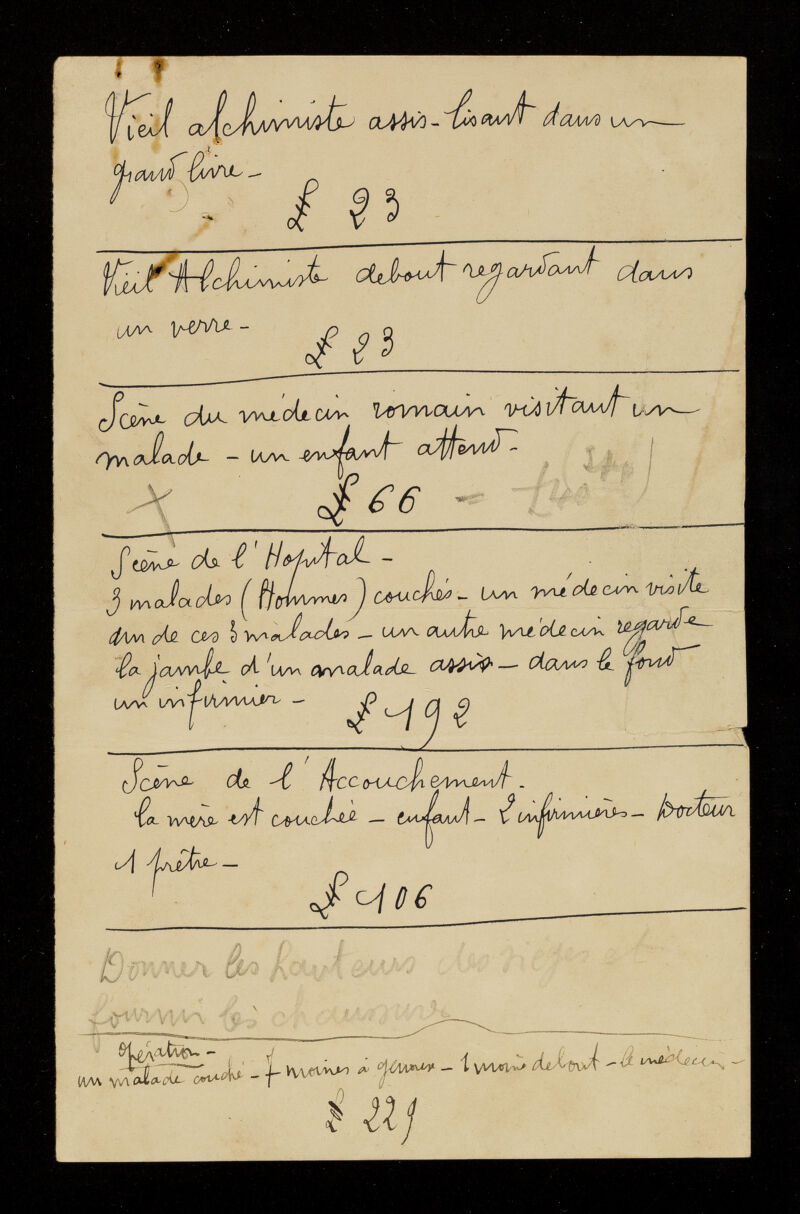 Vieil alchimiste assis - lisant dans un
grand livre -
£ 23
Vieil Alchimiste debout regardant dans
un verre -
£ 23
Scène du médecin romain visitant un
malade - un enfant attend -
£ 66 = £40
Scène de l'Hopital -
3 malades (Hommes) couchés - un médecin visite
un de ces 3 malades - un autre médecin regarde
la jambe d'un malade assis - dans le fond
un infirmier -
£ 192
Scène de l'Accouchement -
la mère est couchée - enfant - 2 infirmières - Docteur
1 prêtre -
£ 106
Donner les hauteurs des sièges et
fournir les chaussures
Opération -
un malade couché - 7 moines à genoux - 1 moine debout - le médecin -
£ 229